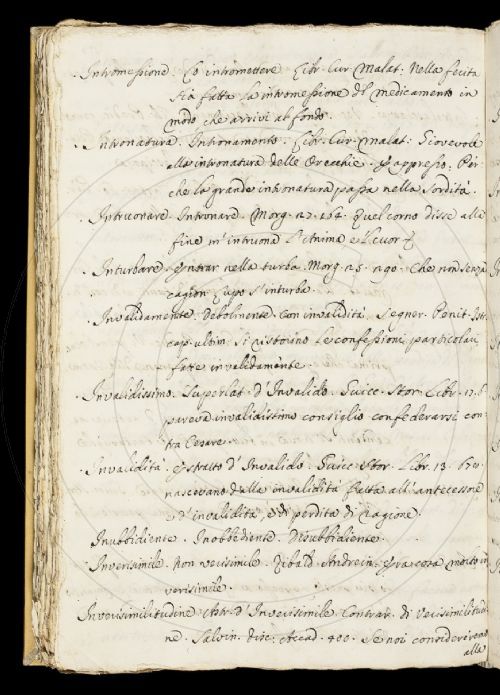 Intromessione. Lo intromettere. Libr. Cur. Malat. Nella ferita
sia fatta la intromessione del medicamento in
modo che arrivi al fondo.
Intronatura. Intronamento. Libr. Cur. Malat. Giovevole
alla intronatura delle Orecchie. E appresso. Per
che la grande intronatura passa nella sordità.
Intruonare. Intronare. Morg. 27. 164. Quel corno disse alla
fine m'intruona L'Anima e'l cuor
Inturbare. Entrar nella turba. Morg. 25. 290. Che non senza
cagion Lupo s'inturba.
Invalidamente. Debolmente. Con invalidità. Segner. Penit. Istr.
cap. ultim. Si ristorino le confessioni particolari
fatte invalidamente.
Invalidissimo. Superlat. d'Invalido. Guicc. Stor. Libr. 17.
pareva invalidissimo consiglio confederarsi con-
tra Cesare.
Invalidità. Estratto d'Invalido. Guicc. Stor. Libr. 13. 650.
nascevano dalla invalidità fatta all'antecessore
d'invalidità, e di perdita di Ragione.
Inubbidiente. Inobbediente. Disubbidiente.
Inverisimile. Non verisimile. Zibald. Andrein. Era cosa molto in
verisimile.
Inverisimilitudine. Astr. d'Inverisimile. Contrar. di Verisimilitudi-
ne. Salvin. disc. Accad. 400. Se noi considereremo
alla